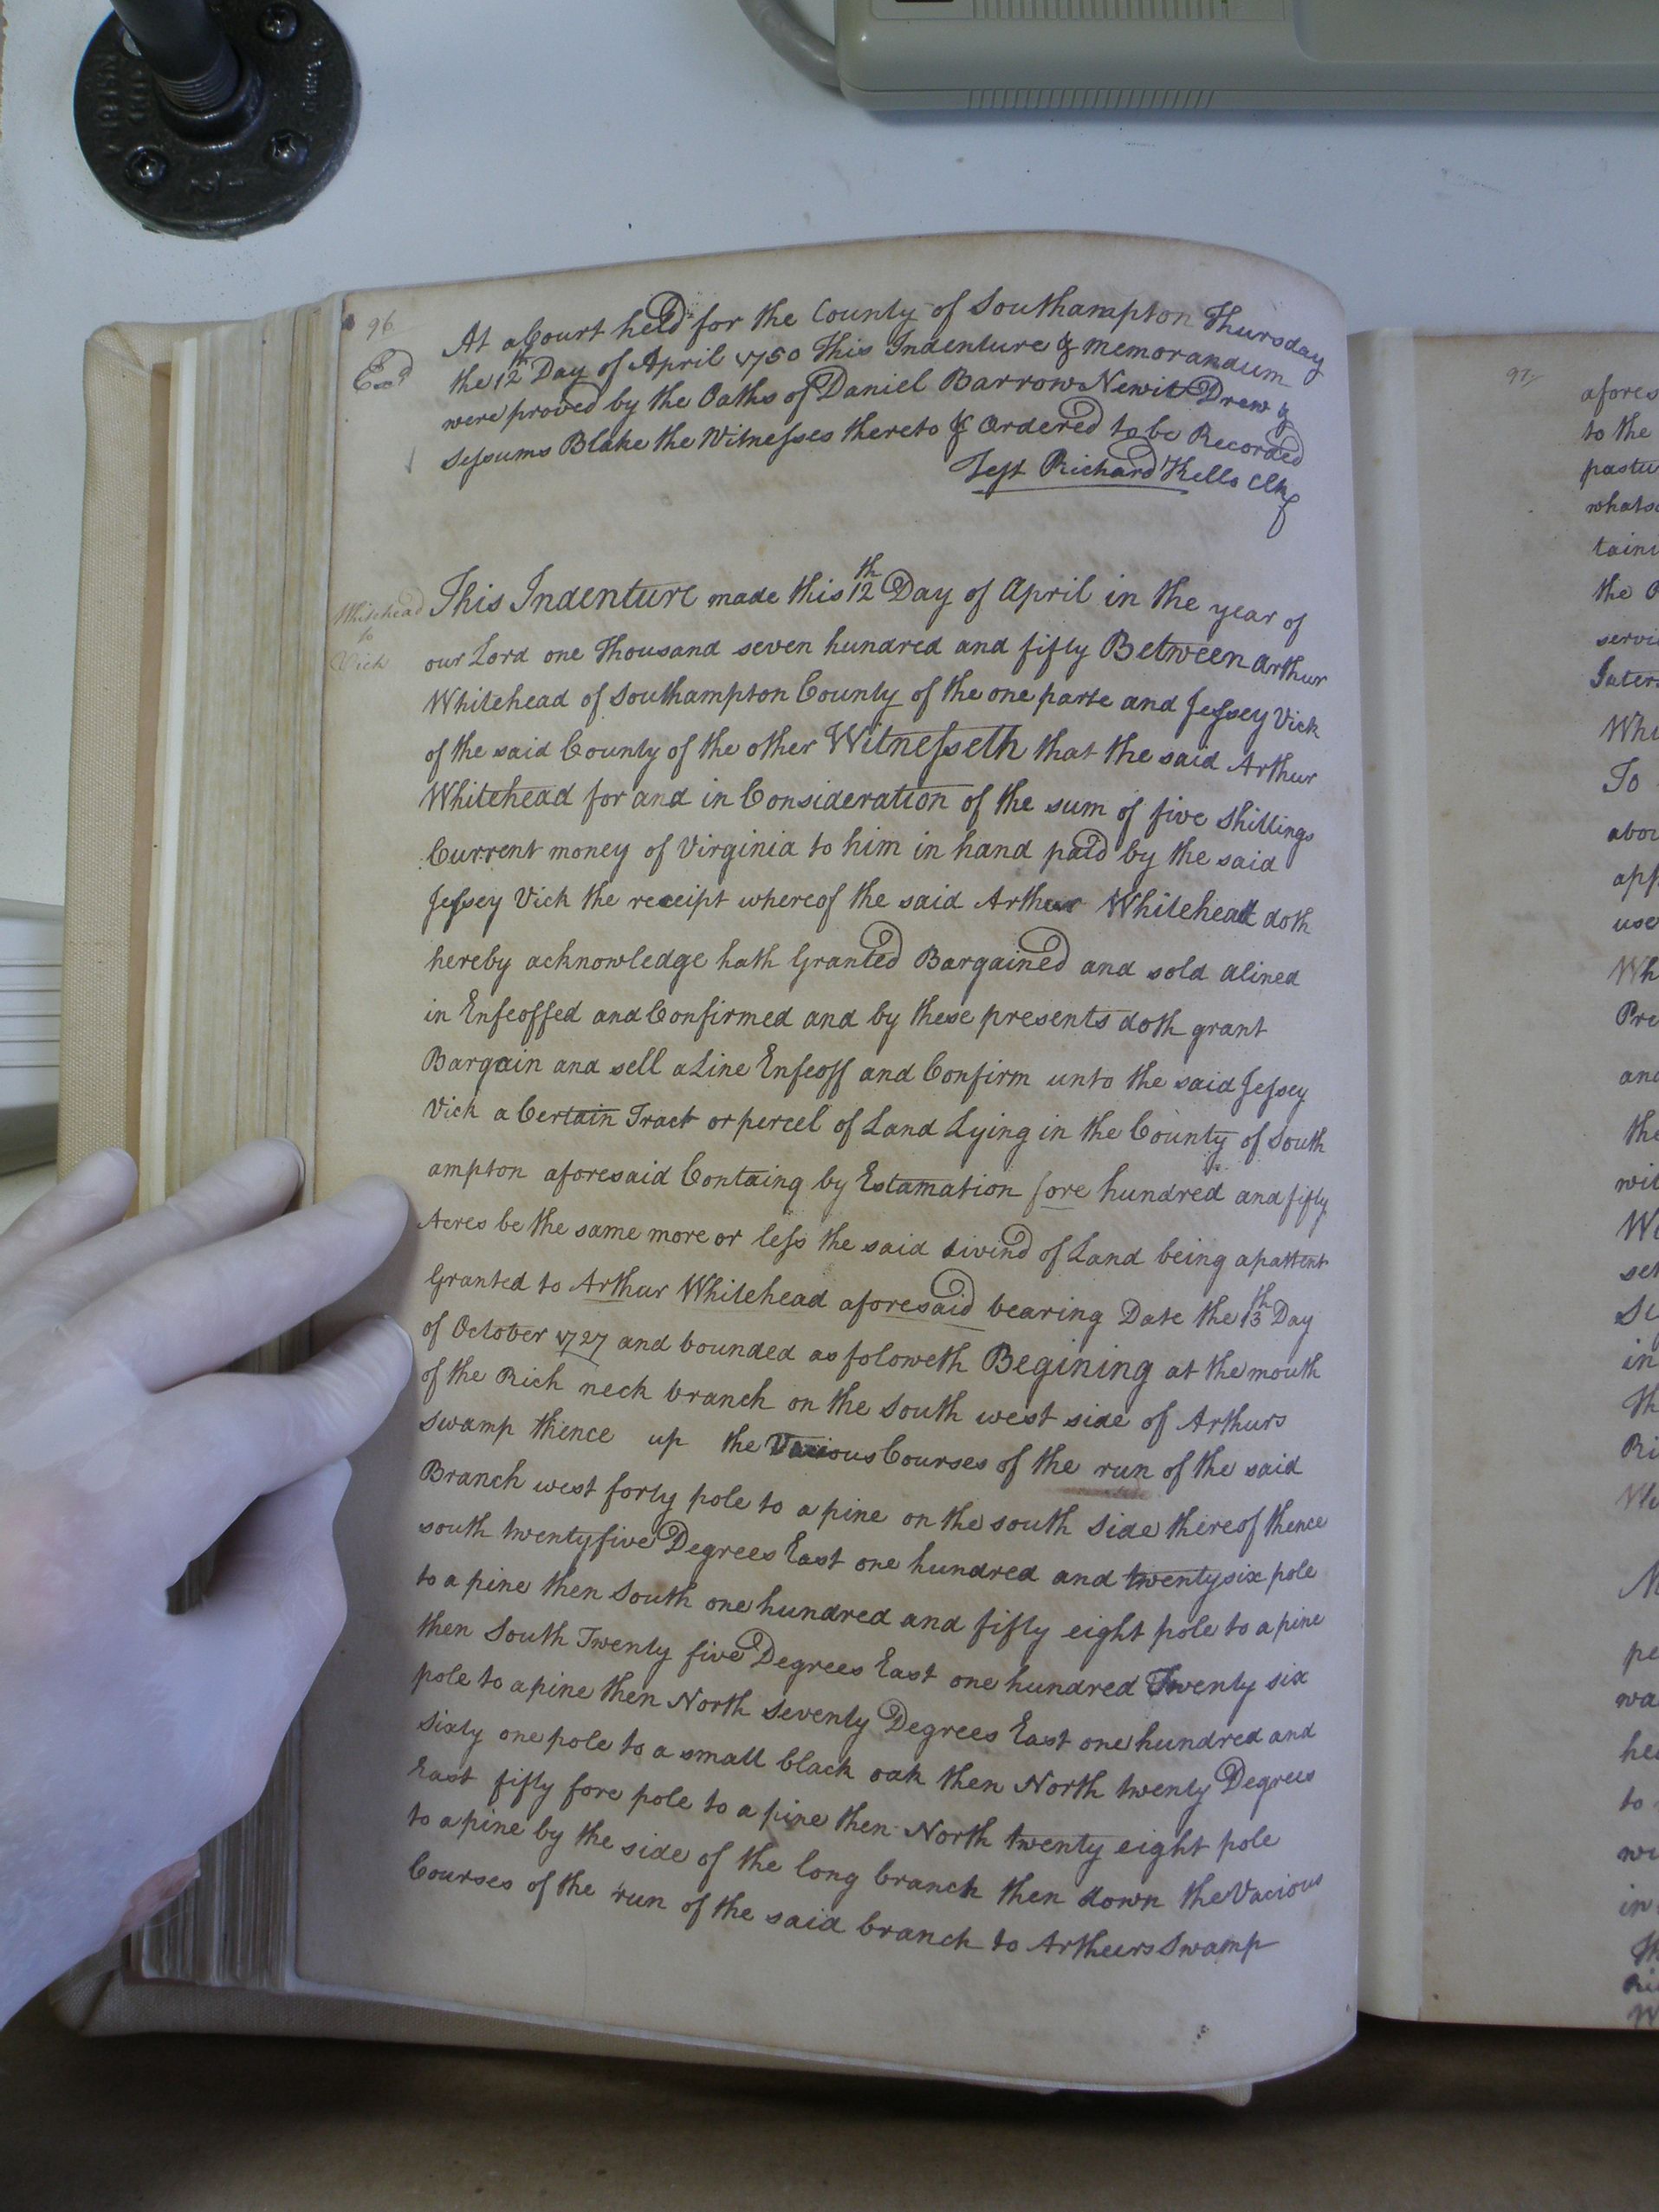 96
At a Court held for the County of Southampton Thursday
Exd
the 12th Day of April 1750 This Indenture & Memorandum
were proved by the Oaths of Daniel Barrow Newit Drew &
Sessums Blake the Witnesses thereto & Ordered to be Recorded
Test Richard Kello Clk
Whitehead
to
Vick
This Indenture made this 12th Day of April in the year of
our Lord one Thousand seven hundred and fifty Between Arthur
Whitehead of Southampton County of the one parte and Jessey Vick
of the said County of the other Witnesseth that the said Arthur
Whitehead for and in Consideration of the sum of five Shillings
Current money of Virginia to him in hand paid by the said
Jessey Vick the receipt whereof the said Arthur Whitehead doth
hereby acknowledge hath Granted Bargained and sold alined
in Enfeoffed and Confirmed and by these presents doth grant
Bargain and sell aLine Enfeoff and Confirm unto the said Jessey
Vick a Certain Tract or percel of Land Lying in the County of South
ampton aforesaid Containg by Estamation fore hundred and fifty
Acres be the same more or less the said divind of Land being a pattent
Granted to Arthur Whitehead aforesaid bearing Date the 13th Day
of October 1727 and bounded as foloweth Begining at the mouth
of the Rich neck branch on the South west side of Arthurs
Swamp thence up the Various Courses of the run of the said
Branch west forty pole to a pine on the south side thereof thence
south twenty five Degrees East one hundred and twenty six pole
to a pine then South one hundred and fifty eight pole to a pine
then South Twenty five Degrees East one hundred Twenty six
pole to a pine then North Seventy Degrees East one hundred and
Sixty one pole to a small black oak then North twenty Degrees
East fifty fore pole to a pine then North twenty eight pole
to a pine by the side of the long branch then down the Vacious
Courses of the run of the said branch to Arthurs Swamp
97
afores
to the
pastu
whats
tain
the
servi
Inter
Whi
To
abov
app
use
Wh
Pre
and
the
wit
We
set
in
Th
Ri
pe
wa
he
to
wi
in